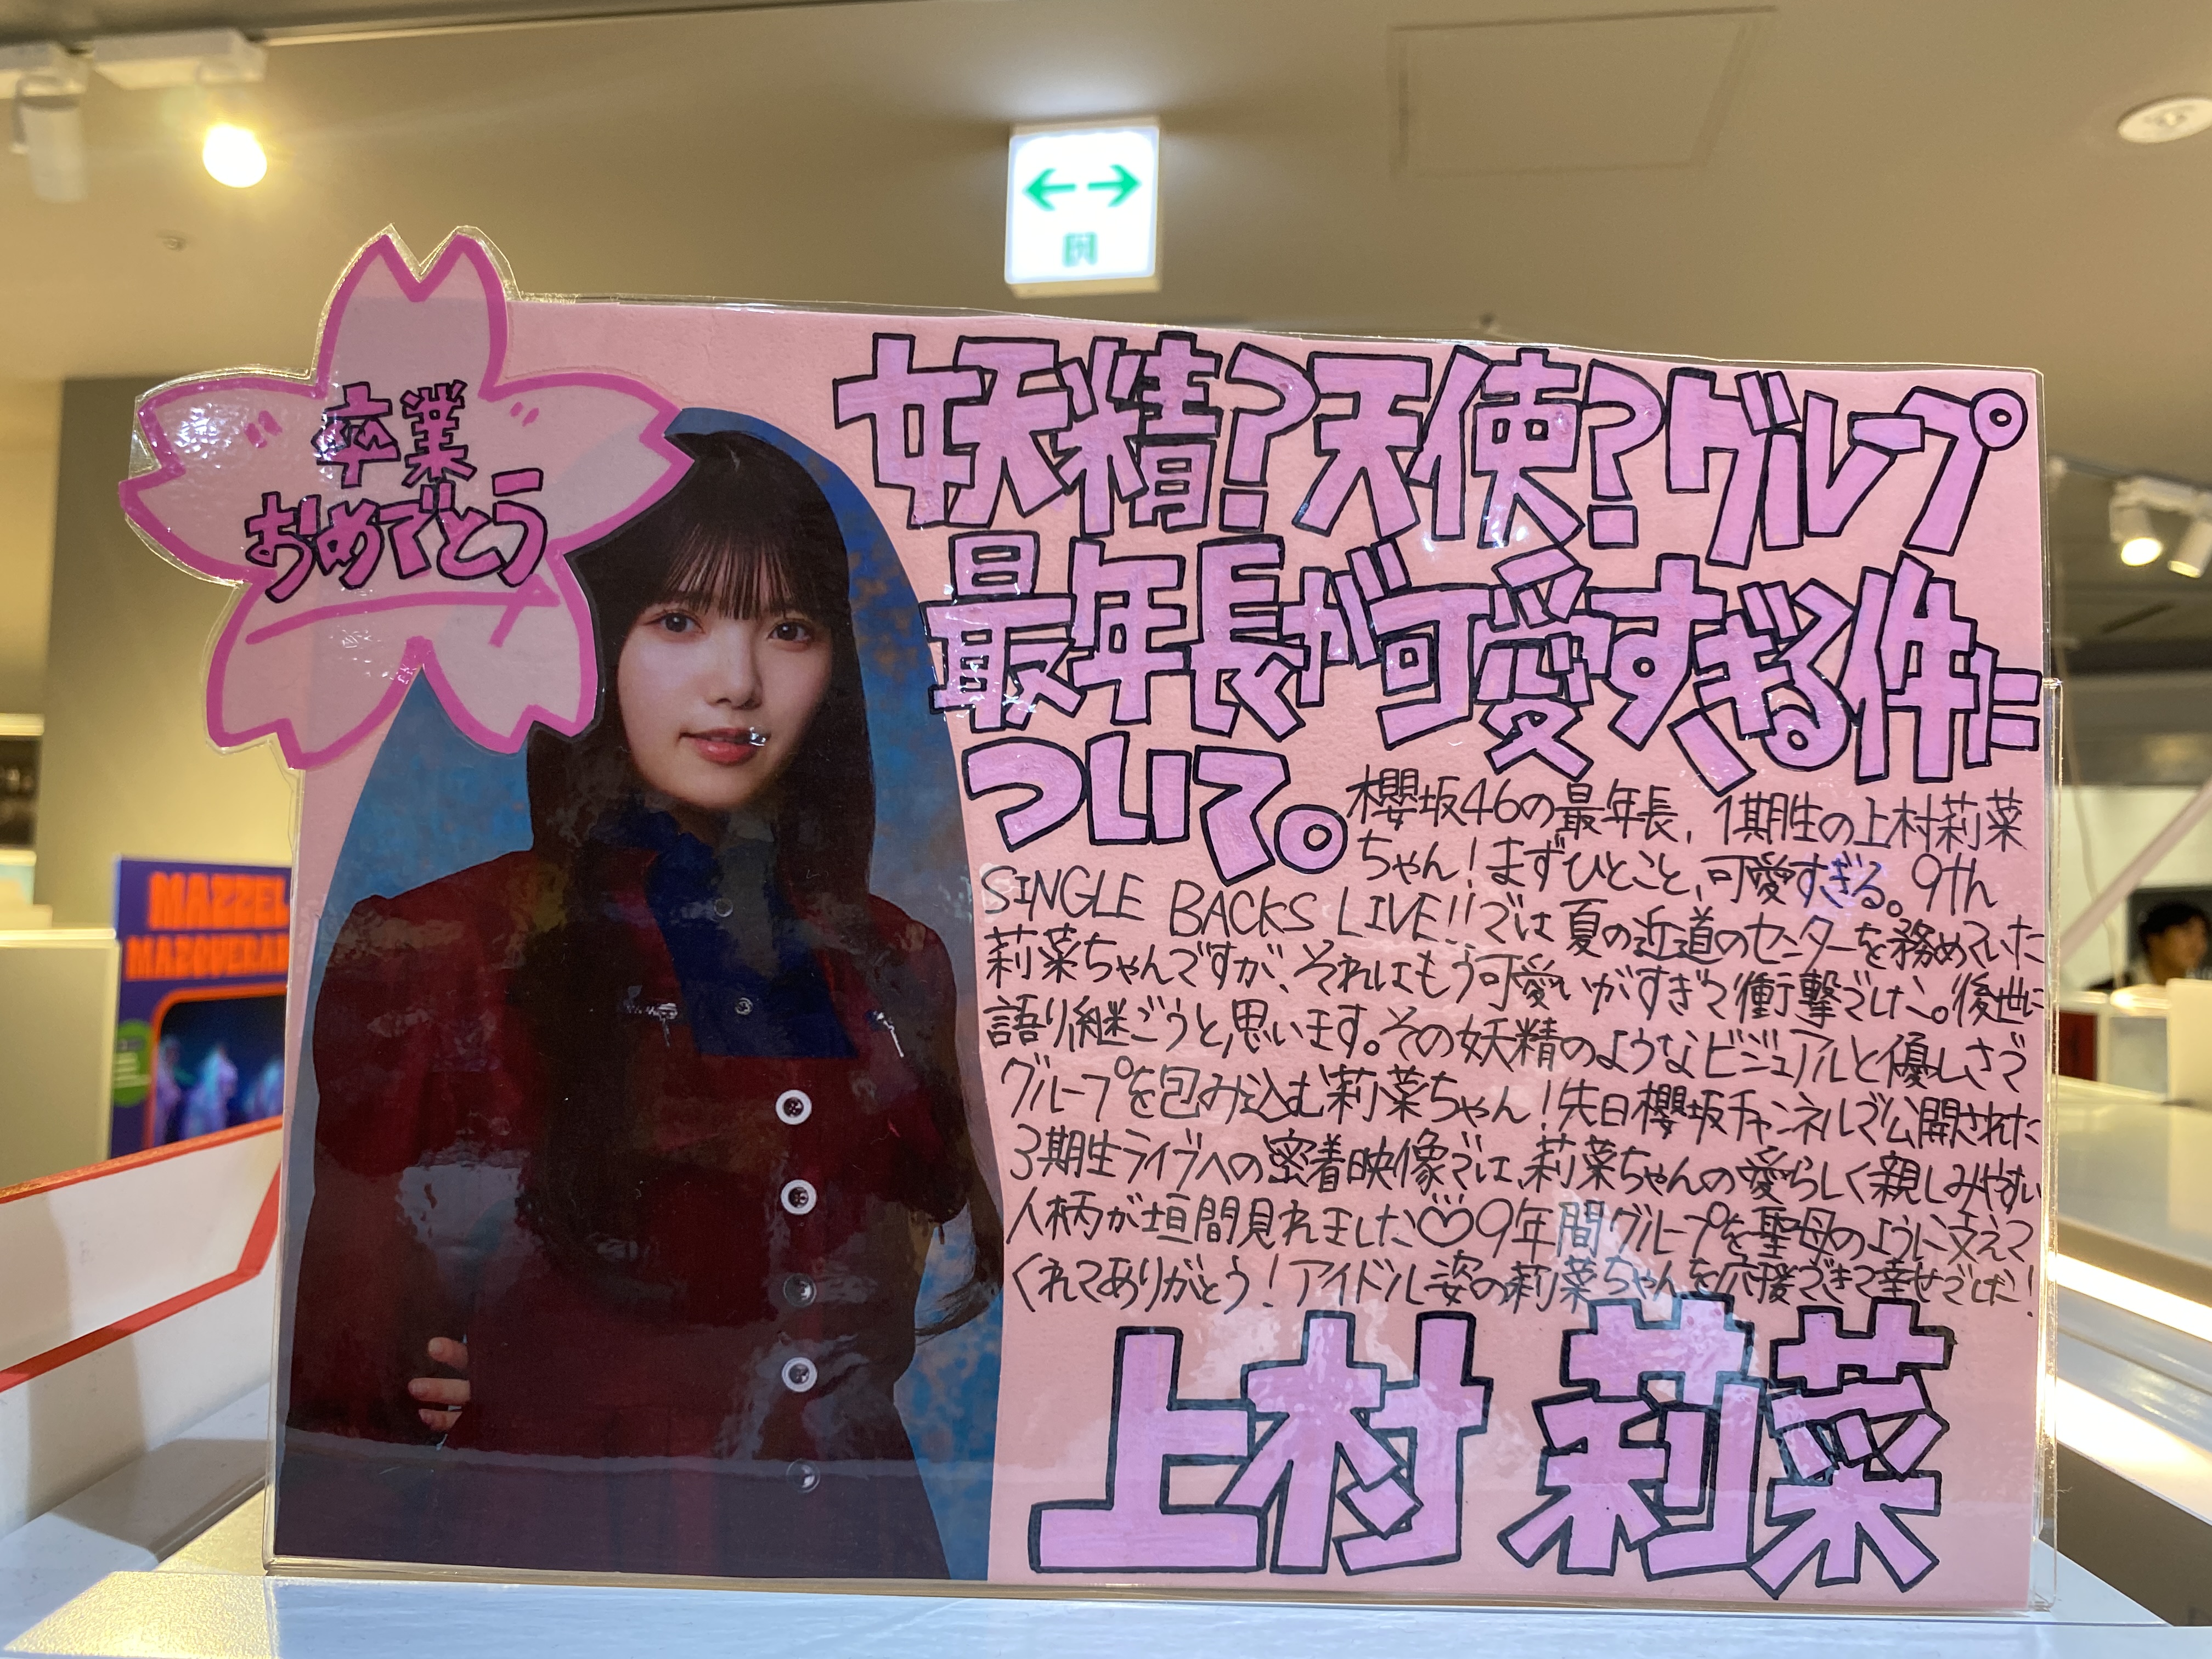 卒業
おめでとう
妖精?天使?グループ
最年長が可愛すぎる件に
ついて。
櫻坂46の最年長、1期生の上村莉菜
ちゃん!まずひとこと、可愛すぎる。9th
SINGLE BACKS LIVE!!では夏の近道のセンターを務めていた
莉菜ちゃんですが、それはもう可愛いがすぎて衝撃でした。後世に
語り継ごうと思います。その妖精のようなビジュアルと優しさで
グループを包み込む莉菜ちゃん!先日櫻坂チャンネルで公開された
3期生ライブへの密着映像では、莉菜ちゃんの愛らしく親しみやすい
人柄が垣間見れました♡9年間グループを聖母のように支えて
くれてありがとう!アイドル姿の莉菜ちゃんを応援できて幸せでした!
上村 莉菜
MAZZEL